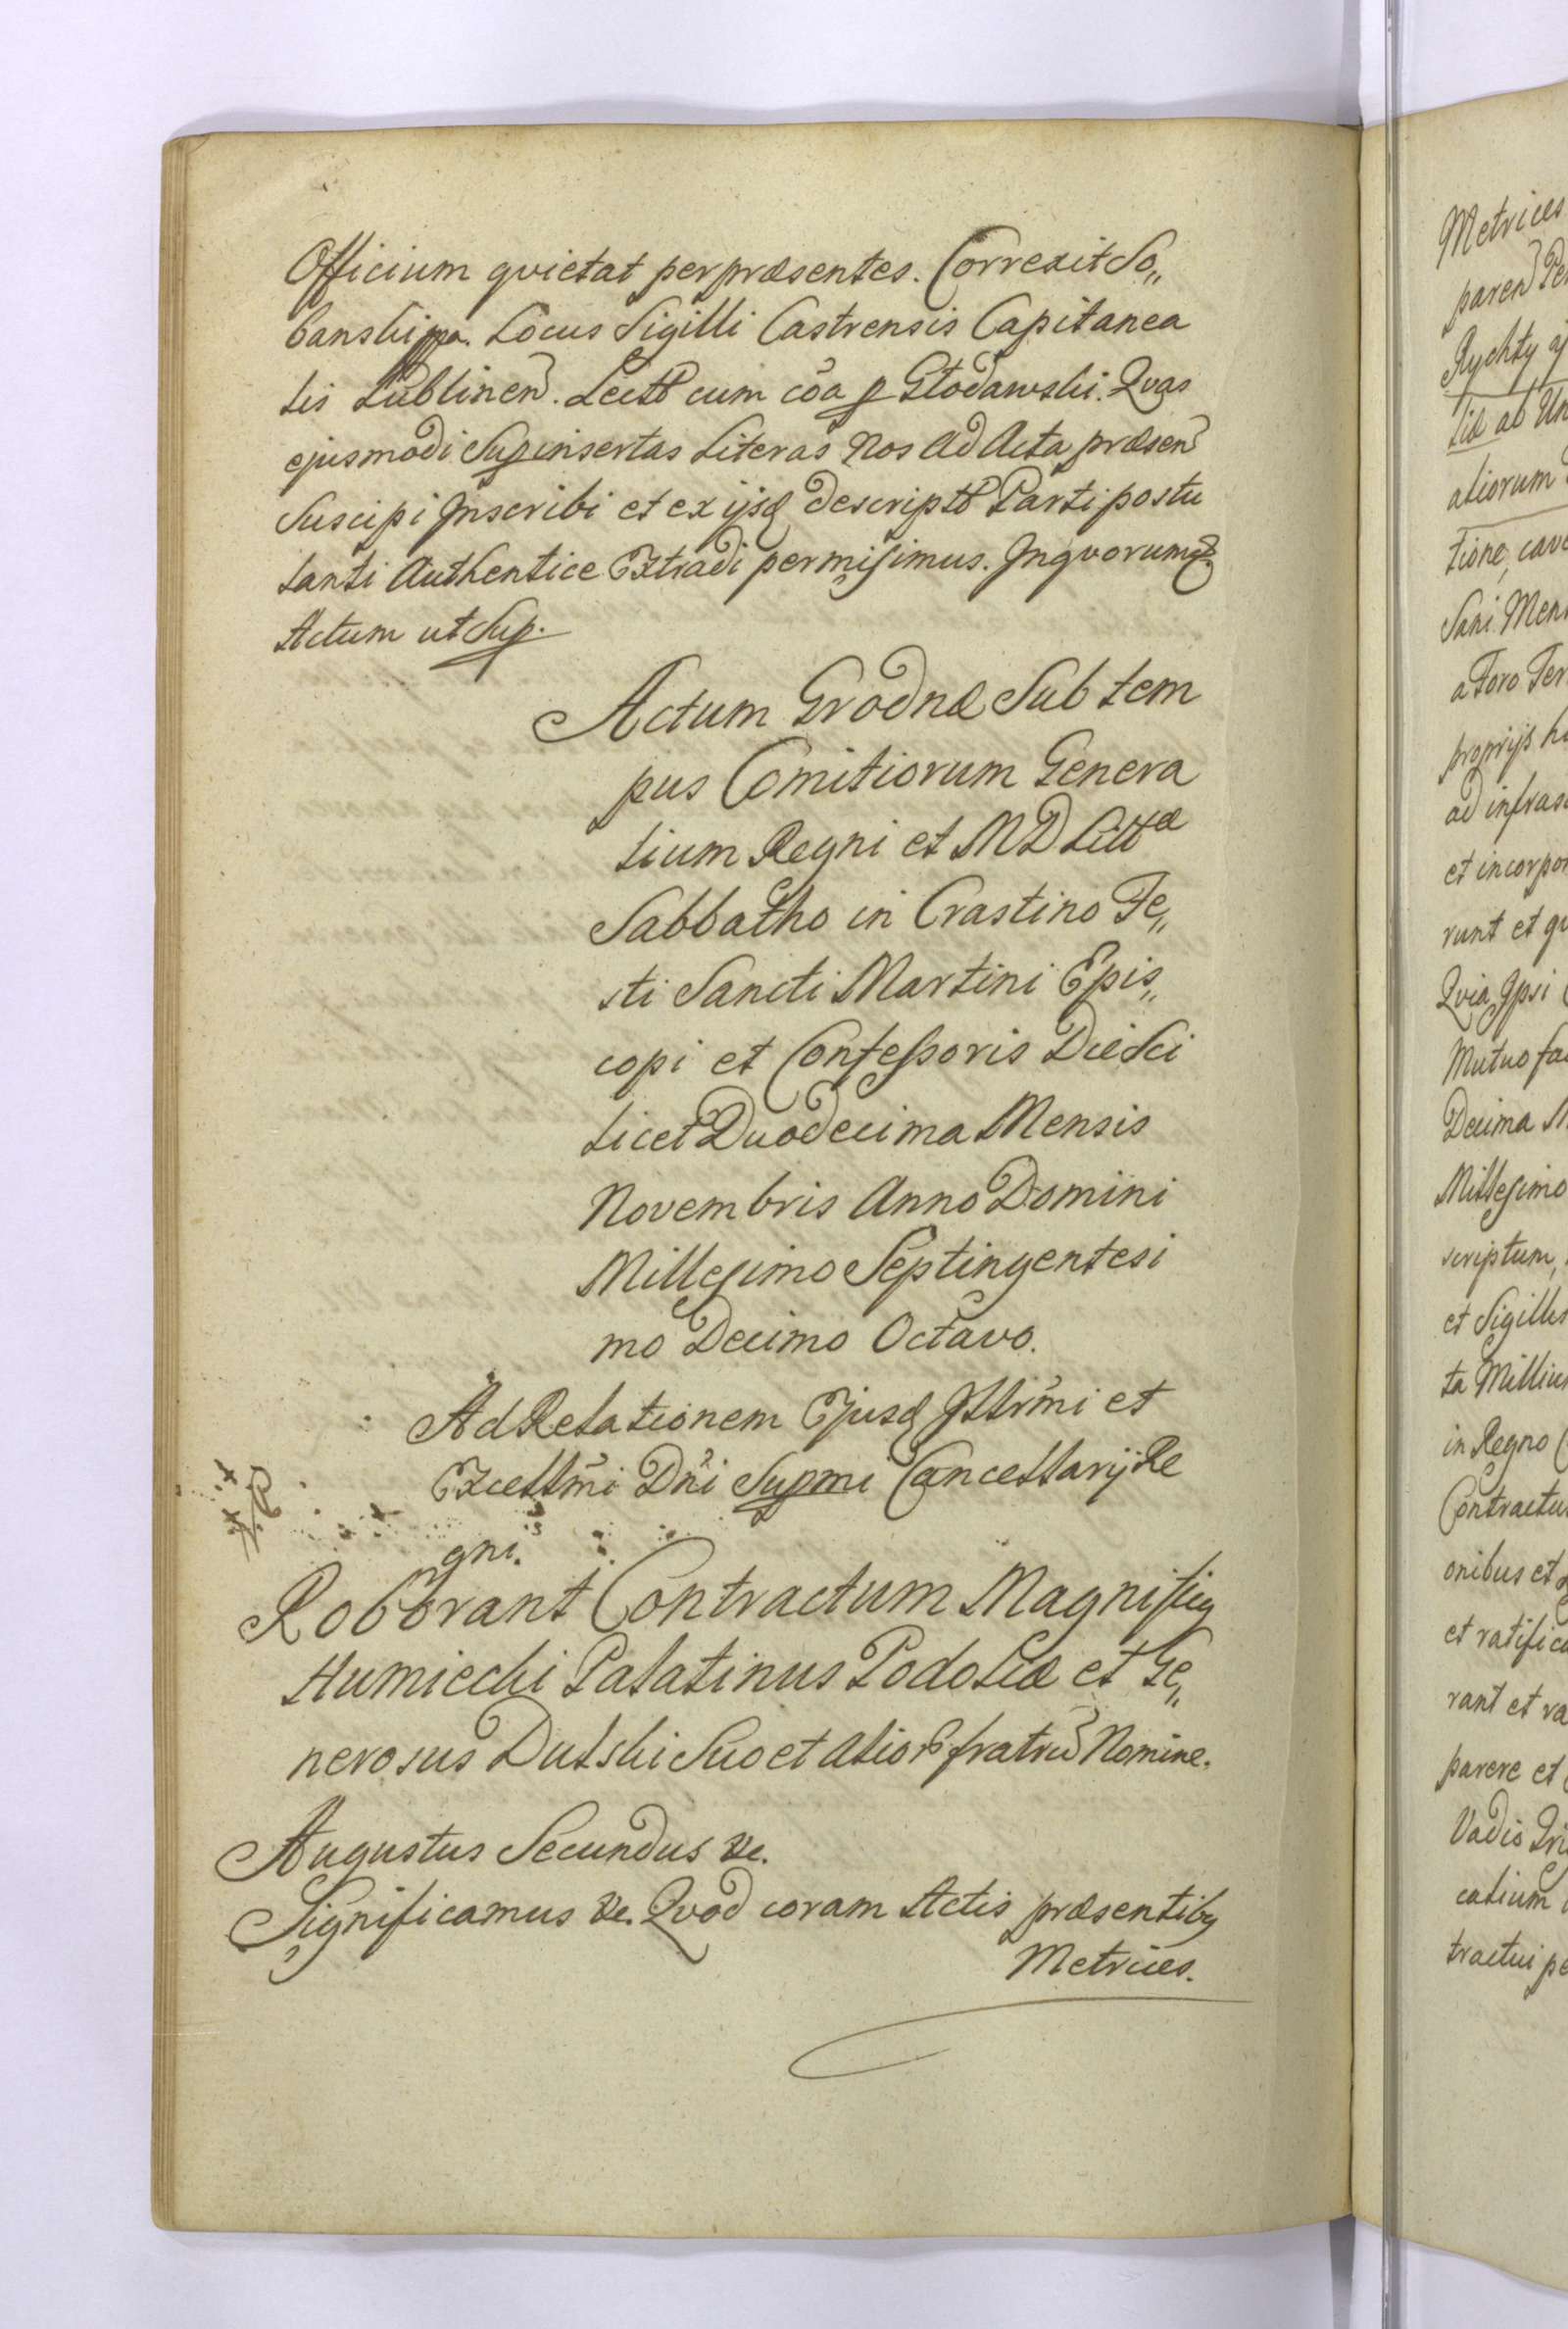 Officium quietat per præsentes. Correxit So„
banski mpa. Locus Sigilli Castrensis Capitanea
lis Lublinen. Lectt cum cõa p Głodawski. Quas
ejusmodi Supinsertas Literas Nos Ad Acta præsen
Suscipi Inscribi et ex ijsq descriptt Parti postu
lanti Authentice Extradi permisimus. Inquorumq
Actum ut Sup.
Actum Grodnæ Sub tem
pus Comitiorum Genera
lium Regni et MD Littæ
Sabbatho in Crastino Fe„
sti Sancti Martini Epis„
copi et Confessoris Die Sci
licet Duodecima Mensis
Novembris Anno Domini
Millesimo Septingentesi
mo Decimo Octavo.
Ad Relationem Ejusq Illrm̃i et
Excellm̃i Dñi Supmi Cancellarij Re
gni.
Roborant Contractum Magnificus
Humiecki Palatinus Podoliæ et Ge„
nerosus Dulski Suo et Alior fratru Nomine.
Augustus Secundus &c.
Significamus &c. Quod coram Actis præsentibus
Metrices.
Metrices
paren
Rychty
liæ ab
aliorum
tione, cav
Sani Men
a Foro Ter
proprijs
ad infras
et incorpor
runt et qu
Quia Ipsi
Mutuo fa
Decima
Millesimo
scriptum,
et Sigillis
ta Milliu
in Regno
Contractu
onibus et
et ratifica
rant et ra
parere et
Vadio Tri
calium
tractui pe